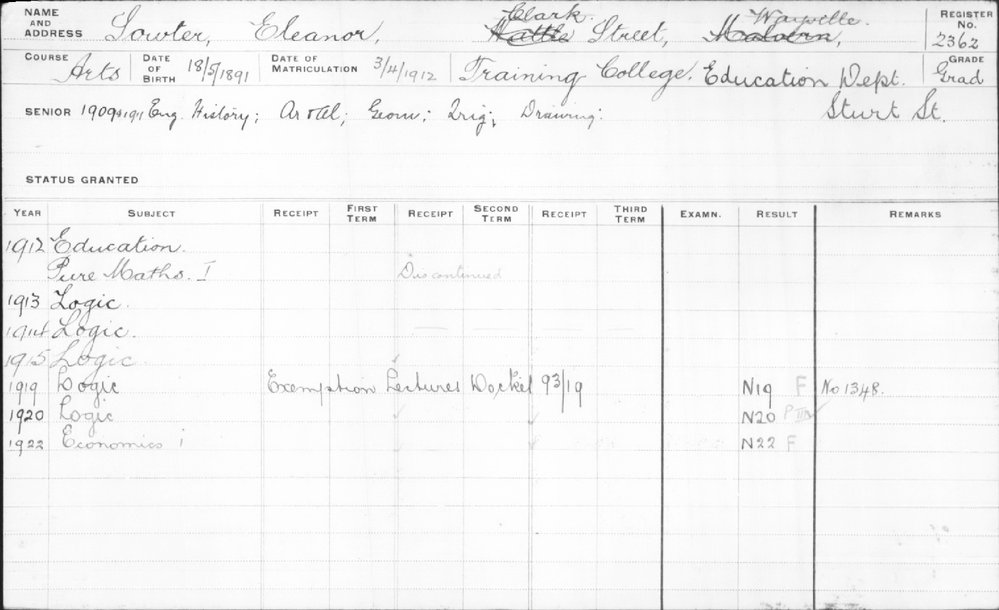 NAME AND ADDRESS Sowter, Eleanor, Clark. Wattle Street, Wayville. Malvern, REGISTER No. 2362
COURSE Arts DATE OF BIRTH 18/5/1891 DATE OF MATRICULATION 3/4/1912 Training College. Education Dept. GRADE Grad
SENIOR 1909+1911 Eng. History; Ar & Al; Geom; Trig; Drawing. Sturt St.
STATUS GRANTED
YEAR SUBJECT RECEIPT FIRST TERM RECEIPT SECOND TERM RECEIPT THIRD TERM EXAMN. RESULT REMARKS
1912 Education.
Pure Maths. I Discontinued
1913 Logic.
1914 Logic.
1915 Logic
1919 Logic Exemption Lectures Docket 93/19 N19 F No 1348.
1920 Logic N20 P
1922 Economics i N22 F